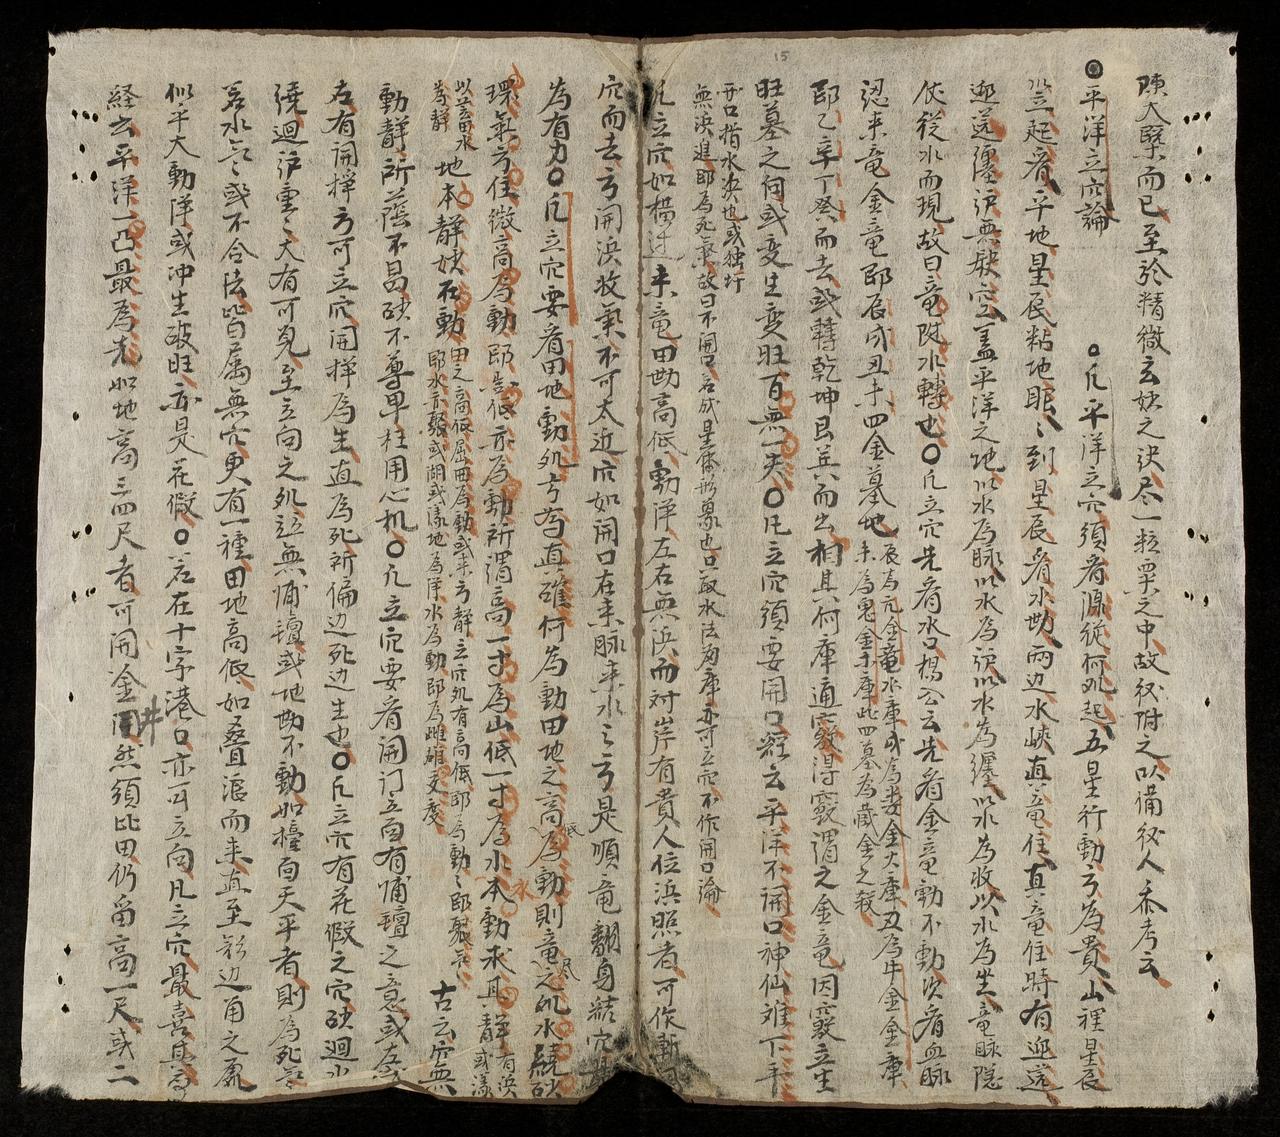 15
陳大槩而已至於精微玄妙之決尽一粒粟之中故从附之以備後人叅考云
平洋立穴論
凡平洋立穴須看源從何処起五星行動方為貴山裡星辰
竖起看平地星辰粘地眠〻到星辰看水坳两边水峽真竜住真竜住時有迎送
迎送纏护無缺空盖平洋之地以水為脉以水為护以水為纏以水為收以水為坐竜脉隱
伏從水而現故曰竜随水轉也〇凡立穴先看水口楊公云先看金竜動不動次看血脉
認来竜金竜即辰戌丑未四金墓地
辰為亢金竜水庫戌為婁金火庫丑為牛金金庫
未為鬼金木庫此四墓為藏金之殺
即乙辛丁癸而去或轉乾坤艮巽而出相其何庫通穴竅得竅謂之金竜因竅立生
旺墓之向或变生变旺百無一失〇凡立穴須要開口經云平洋不開口神仙难下手
開口指水決也或独圩
無浜進即為死氣故曰不開口若成星体形象也只取水法為庫亦可立穴不作開口論
凡立穴如橫过来竜田坳高低動静左右無浜而对岸有貴人位浜照者可作斬関
穴而去方開浜收氣不可太近穴如開口在来脉来水之方是順竜翻身結穴
為有力〇凡立穴要看田地動処方為直確何為動田地之高低為動則竜之尽処水繞砂
環氣方住微高為動即告低亦為動所謂高一寸為山低一寸為水水本動求其静
有浜
或漾
以蓄水
為静
地本静妙在動
田之高低屈曲為動或来方静立穴処有高低即為動〻即聚氣
即水亦聚或湖或漾地為浑水為動即為雌雄交度
古云穴無
動静所蔭不昌砂不尊卑枉用心机〇凡立穴要看開门立向有铺毡之意或左
右有開挣方可立穴開挣為生直為死所偏边死边生也〇凡立穴有花假之穴砂迴水
繞迴护重〻大有可見至立向之処並無铺毡或地坳不動如檯白天平者則為死氣
若水氣或不合法皆属無穴更有一種田地高低如叠浪而来直至彩边角之氣
似乎大動浑或冲生破旺亦是花假〇若在十字港口亦可立向凡立穴最喜
経云平洋一凸最為尤如地高三四尺者可開金井然須比田仍留高一尺或二